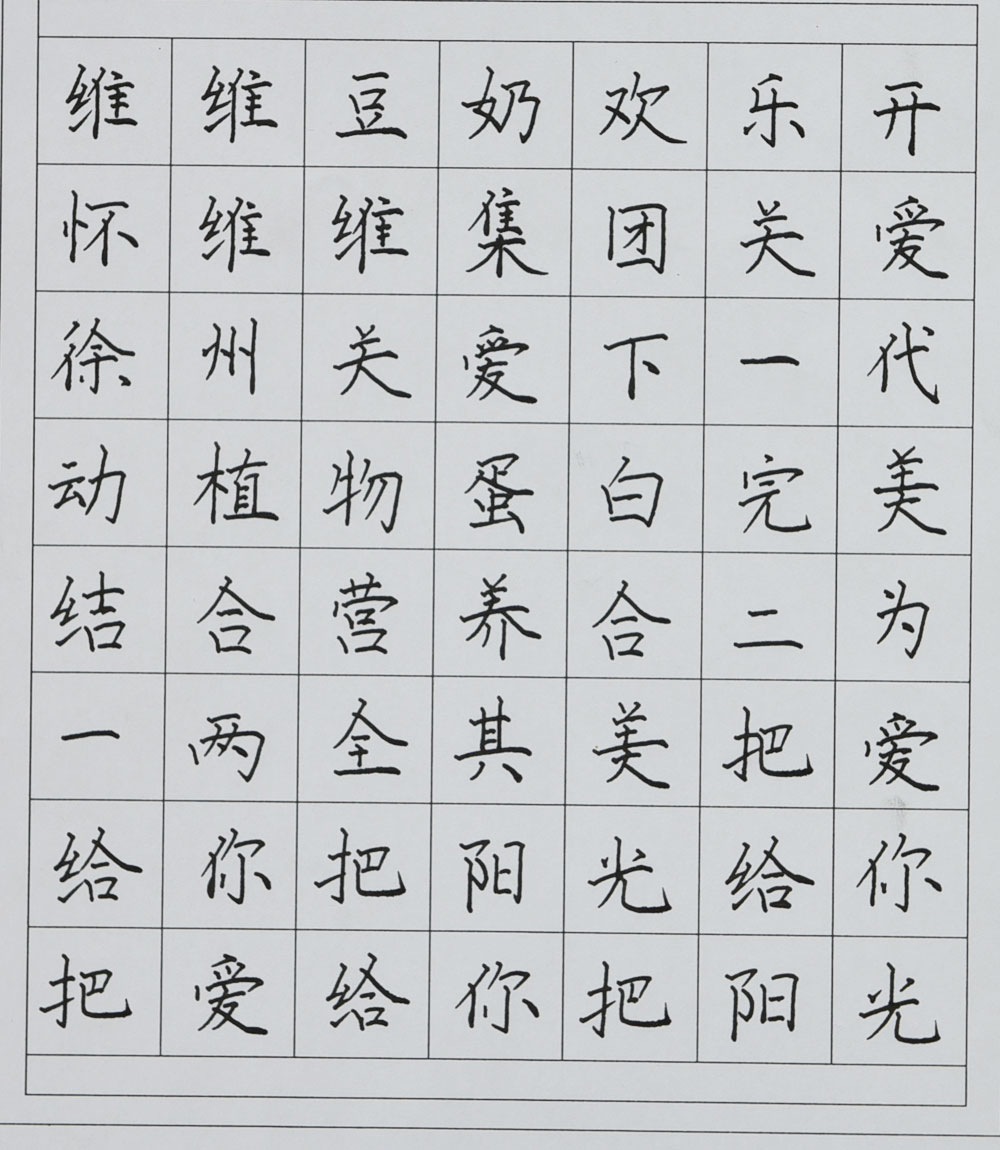 维维豆奶欢乐开
怀维维集团关爱
徐州关爱下一代
动植物蛋白完美
结合营养合二为
一两全其美把爱
给你把阳光给你
把爱给你把阳光